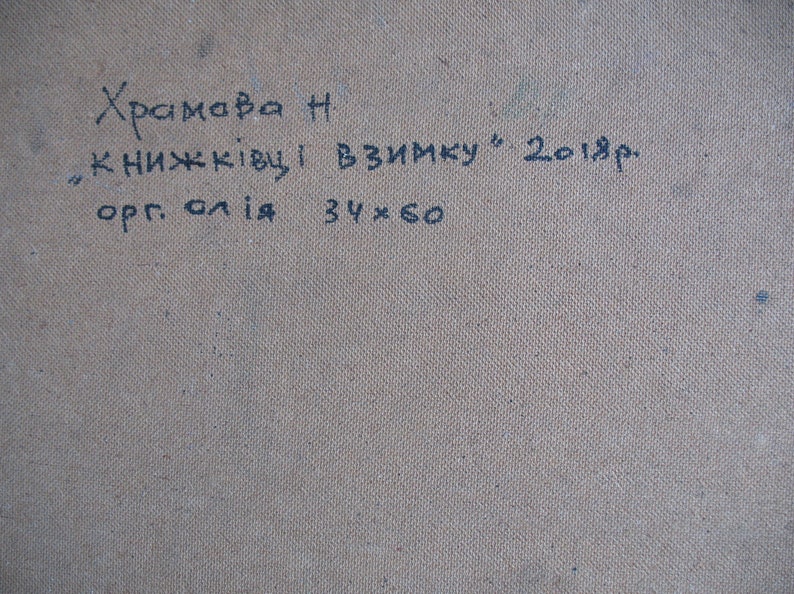 Храмова Н
„Книжківці взимку" 2018р.
орг. олія 34×60